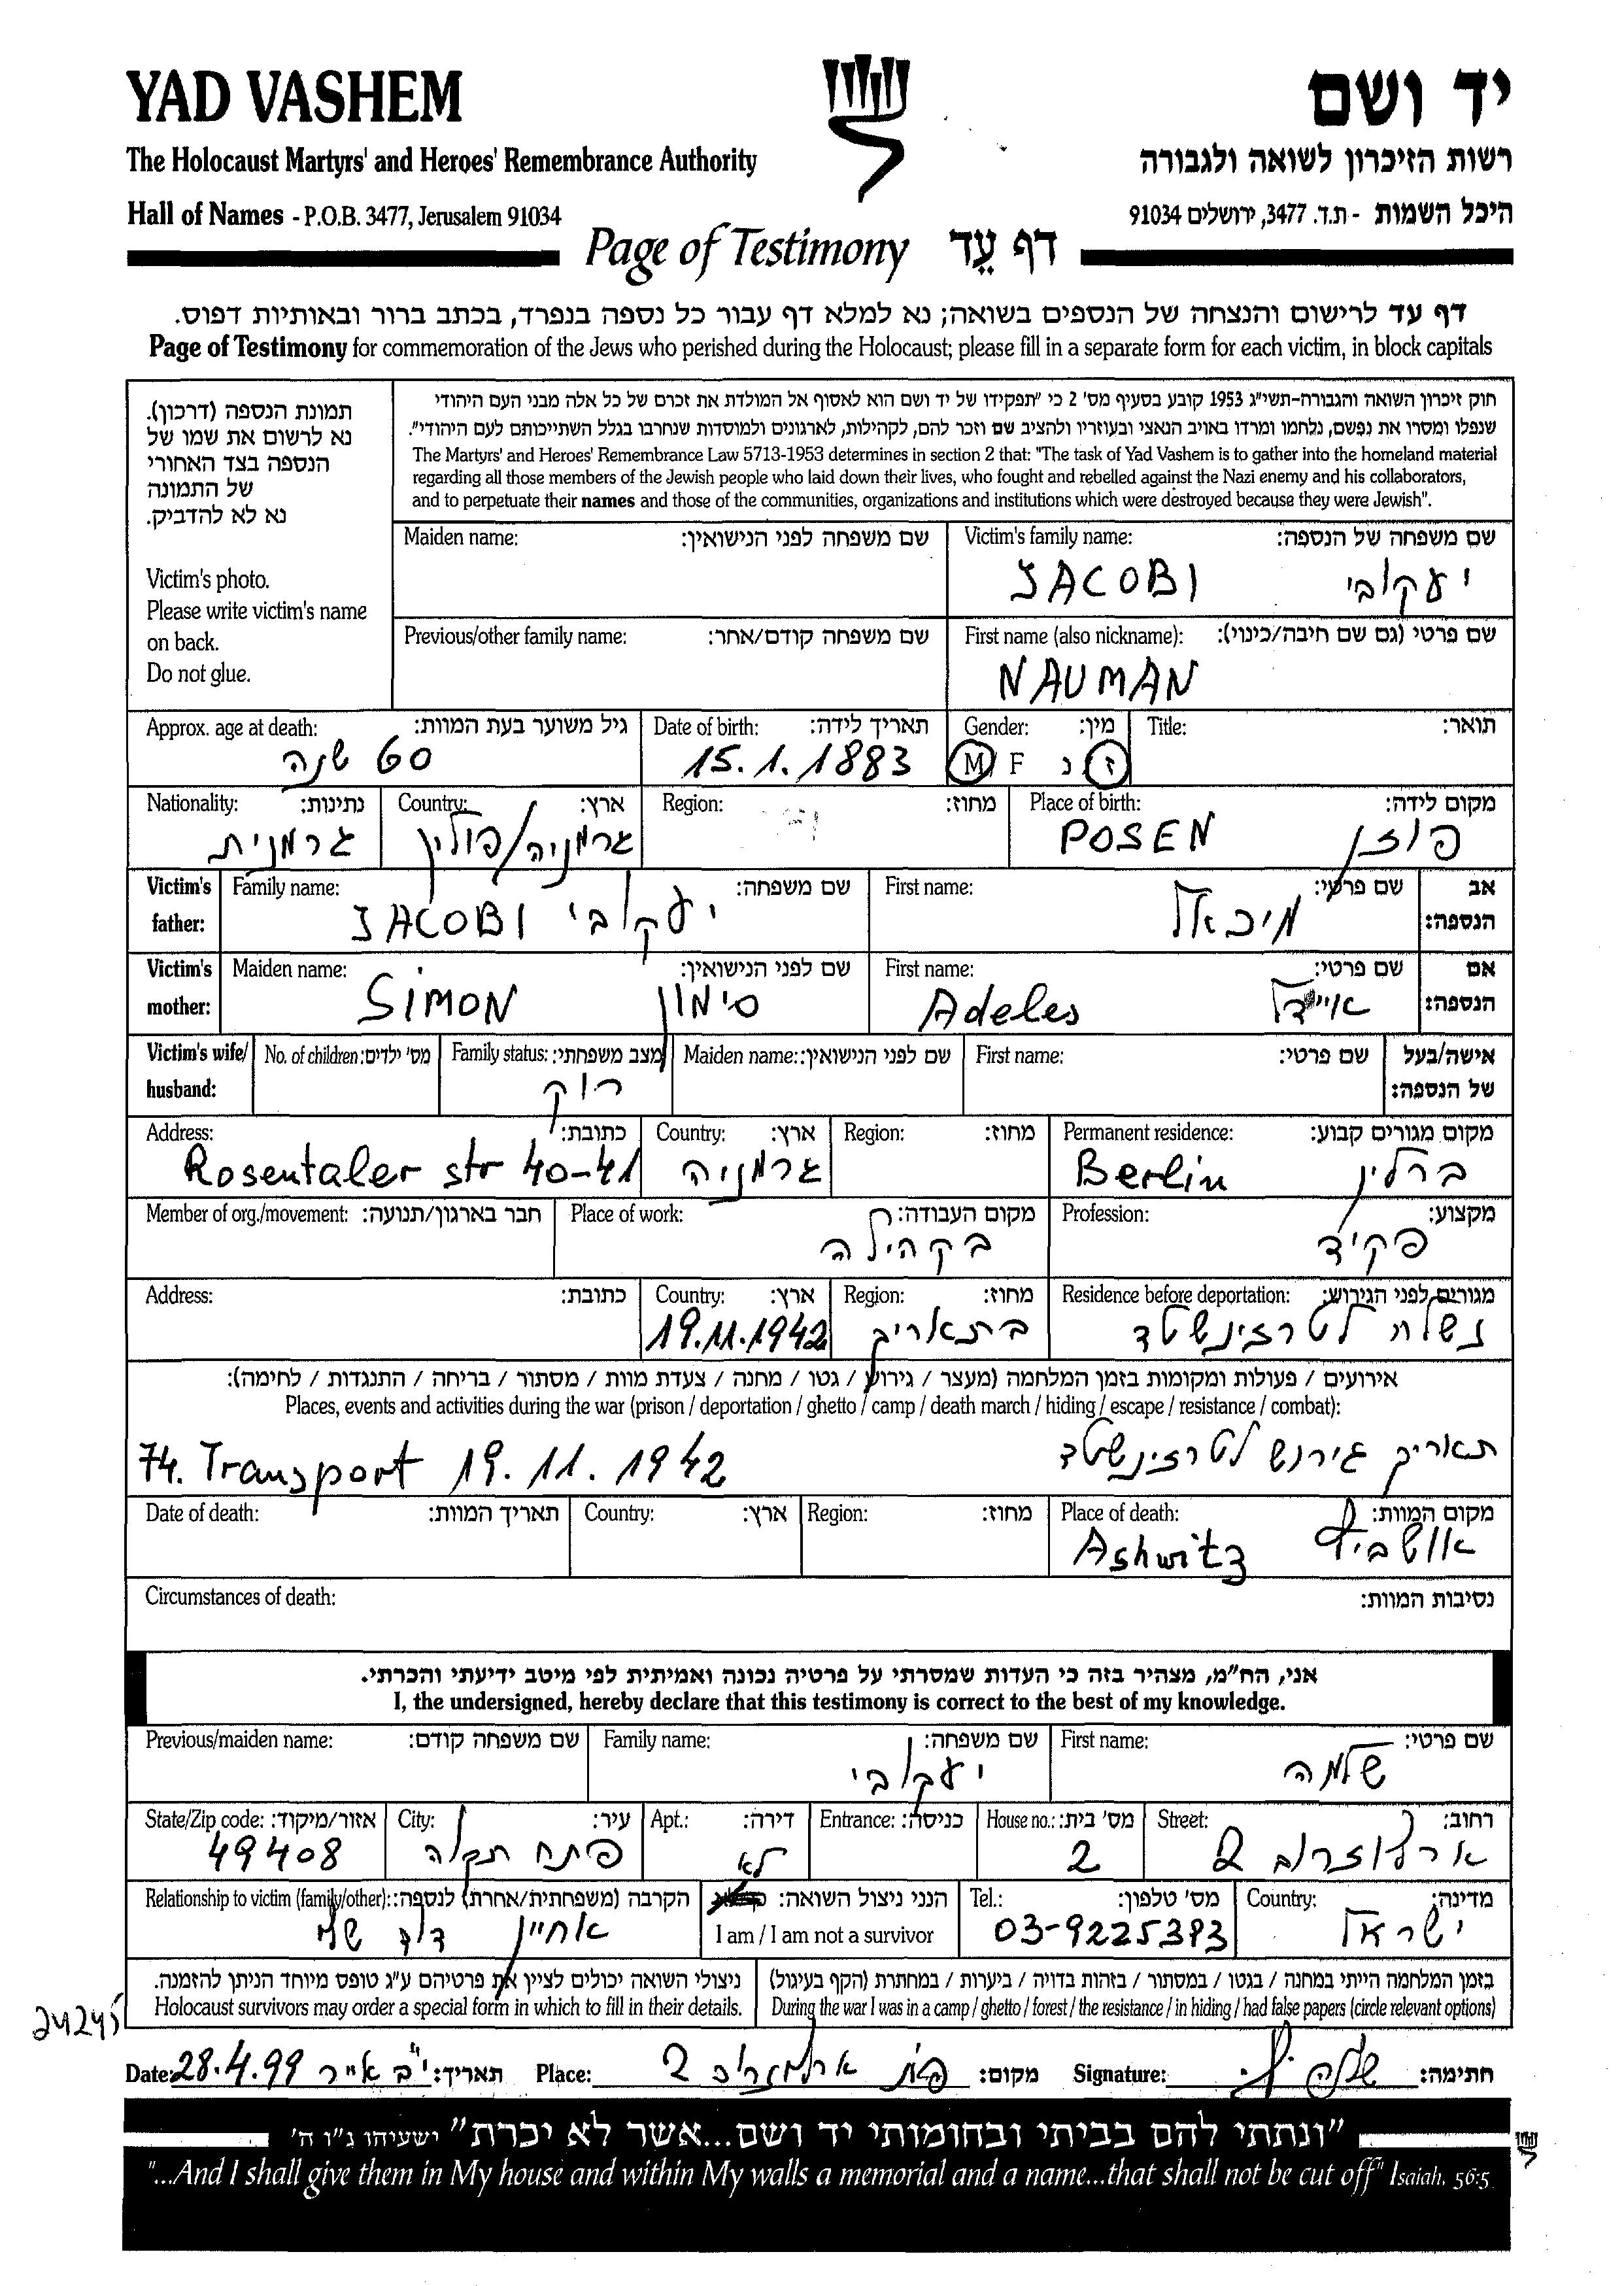 YAD VASHEM
יד ושם
The Holocaust Martyrs' and Heroes' Remembrance Authority
רשות הזיכרון לשואה ולגבורה
Hall of Names - P.O.B. 3477, Jerusalem 91034
היכל השמות - ת.ד. 3477, ירושלים 91034
Page of Testimony דף עֵד
דף עד לרישום והנצחה של הנספים בשואה; נא למלא דף עבור כל נספה בנפרד, בכתב ברור ובאותיות דפוס.
Page of Testimony for commemoration of the Jews who perished during the Holocaust; please fill in a separate form for each victim, in block capitals
תמונת הנספה (דרכון).
נא לרשום את שמו של
הנספה בצד האחורי
של התמונה
נא לא להדביק.
Victim's photo.
Please write victim's name
on back.
Do not glue.
חוק זיכרון השואה והגבורה-תשי"ג 1953 קובע בסעיף מס' 2 כי "תפקידו של יד ושם הוא לאסוף אל המולדת את זכרם של כל אלה מבני העם היהודי
שנפלו ומסרו את נפשם, נלחמו ומרדו באויב הנאצי ובעוזריו ולהציב שם וזכר להם, לקהילות, לארגונים ולמוסדות שנחרבו בגלל השתייכותם לעם היהודי".
The Martyrs' and Heroes' Remembrance Law 5713-1953 determines in section 2 that: "The task of Yad Vashem is to gather into the homeland material
regarding all those members of the Jewish people who laid down their lives, who fought and rebelled against the Nazi enemy and his collaborators,
and to perpetuate their names and those of the communities, organizations and institutions which were destroyed because they were Jewish".
Maiden name: שם משפחה לפני הנישואין:
Victim's family name: שם משפחה של הנספה:
JACOBI יעקובי
Previous/other family name: שם משפחה קודם/אחר:
First name (also nickname): שם פרטי (גם שם חיבה/כינוי):
NAUMAN
Approx. age at death: גיל משוער בעת המוות:
60 שנה
Date of birth: תאריך לידה:
15.1.1883
Gender: מין:
M F נ ז
Title: תואר:
Nationality: נתינות:
גרמנית
Country: ארץ:
גרמניה/פולין
Region: מחוז:
Place of birth: מקום לידה:
POSEN פוזן
Victim's father:
Family name: שם משפחה:
JACOBI יעקובי
First name: שם פרטי:
מיכאל
אב הנספה:
Victim's mother:
Maiden name: שם לפני הנישואין:
SIMON סימון
First name: שם פרטי:
Adeles איידל
אם הנספה:
Victim's wife/ husband:
No. of children: מס' ילדים:
Family status: מצב משפחתי:
רוק
Maiden name: שם לפני הנישואין:
First name: שם פרטי:
אישה/בעל של הנספה:
Address: כתובת:
Rosentaler str 40-41
Country: ארץ:
גרמניה
Region: מחוז:
Permanent residence: מקום מגורים קבוע:
Berlin ברלין
Member of org./movement: חבר בארגון/תנועה:
Place of work: מקום העבודה:
בקהילה
Profession: מקצוע:
פקיד
Address: כתובת:
Country: ארץ:
Region: מחוז:
Residence before deportation: מגורים לפני הגירוש:
נשלח לטרזינשטד בתאריך 19.11.1942
אירועים / פעולות ומקומות בזמן המלחמה (מעצר / גירוש / גטו / מחנה / צעדת מוות / מסתור / בריחה / התנגדות / לחימה):
Places, events and activities during the war (prison / deportation / ghetto / camp / death march / hiding / escape / resistance / combat):
תאריך גירוש לטרזינשטד
74. Transport 19.11.1942
Date of death: תאריך המוות:
Country: ארץ:
Region: מחוז:
Place of death: מקום המוות:
Ashwitz אושביץ
Circumstances of death: נסיבות המוות:
אני, הח"מ, מצהיר בזה כי העדות שמסרתי על פרטיה נכונה ואמיתית לפי מיטב ידיעתי והכרתי.
I, the undersigned, hereby declare that this testimony is correct to the best of my knowledge.
Previous/maiden name: שם משפחה קודם:
Family name: שם משפחה:
יעקובי
First name: שם פרטי:
שלמה
State/Zip code: אזור/מיקוד:
49408
City: עיר:
פתח תקוה
Apt.: דירה:
לא
Entrance: כניסה:
House no.: מס' בית:
2
Street: רחוב:
ארלוזרוב 2
Relationship to victim (family/other): הקרבה (משפחתית/אחרת) לנספה:
אחיין
הנני ניצול השואה:
I am / I am not a survivor
Tel.: מס' טלפון:
03-9225383
Country: מדינה:
ישראל
ניצולי השואה יכולים לציין את פרטיהם ע"ג טופס מיוחד הניתן להזמנה.
Holocaust survivors may order a special form in which to fill in their details.
בזמן המלחמה הייתי במחנה / בגטו / במסתור / בזהות בדויה / ביערות / במחתרת (הקף בעיגול)
During the war I was in a camp / ghetto / forest / the resistance / in hiding / had false papers (circle relevant options)
24245
Date: 28.4.99 י"ב אייר תאריך:
Place: ארלוזרוב 2 מקום:
Signature: חתימה:
"ונתתי להם בביתי ובחומותי יד ושם...אשר לא יכרת" ישעיהו נ"ו ה'
"...And I shall give them in My house and within My walls a memorial and a name...that shall not be cut off" Isaiah, 56:5